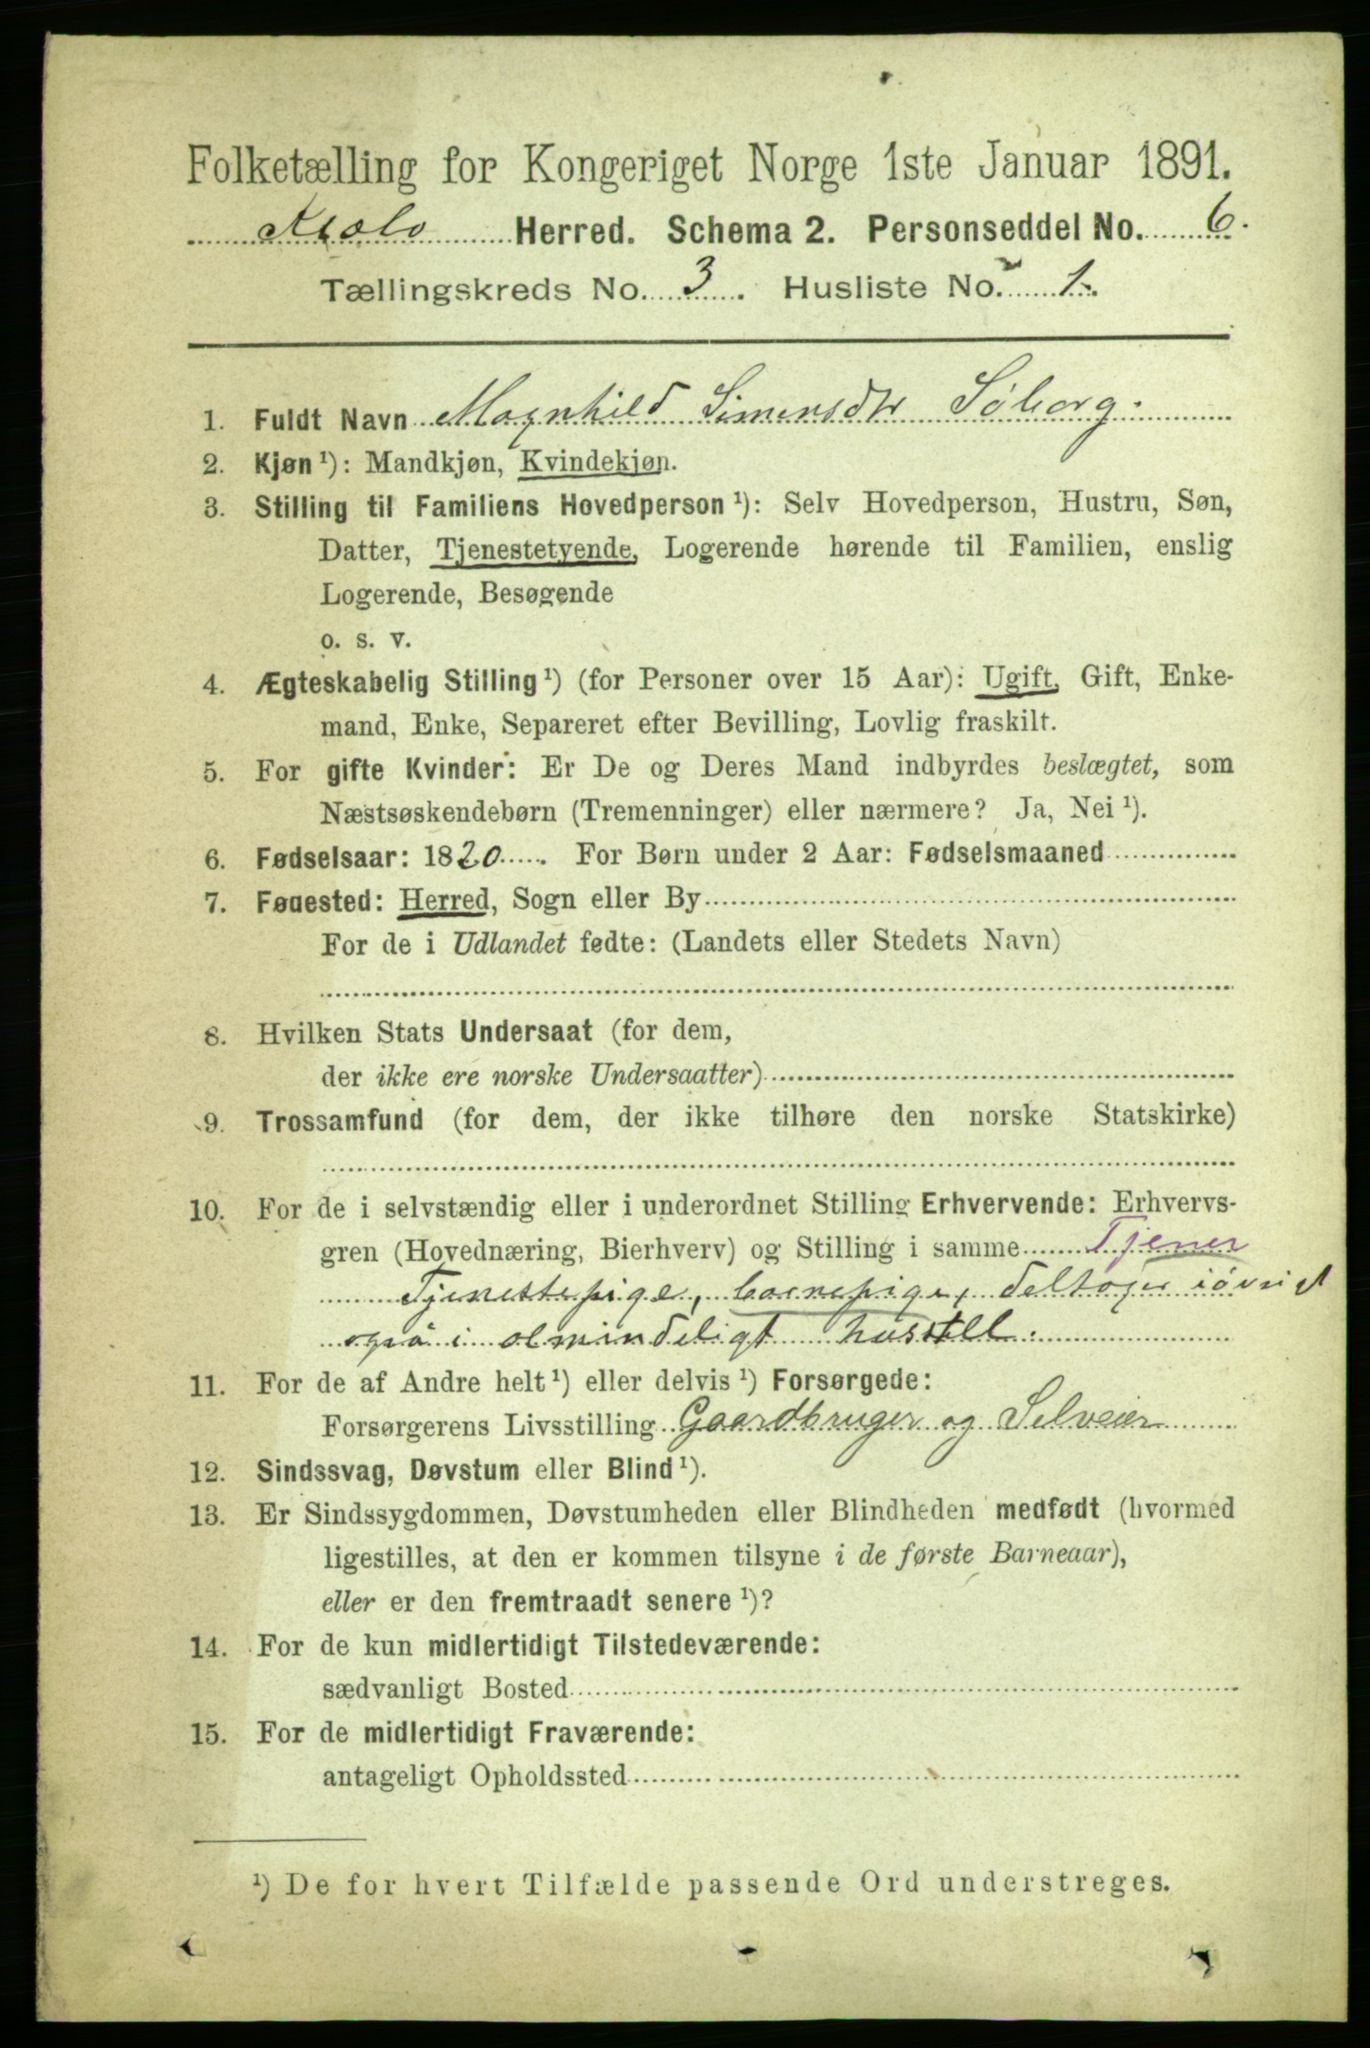 Folketælling for Kongeriget Norge 1ste Januar 1891.
Herred. Schema 2. Personseddel No. 6.
Tællingskreds No. 3. Husliste No. 1.
1. Fuldt Navn Magnhild Simensdtr Søborg.
2. Kjøn ¹): Mandkjøn, Kvindekjøn.
3. Stilling til Familiens Hovedperson ¹): Selv Hovedperson, Hustru, Søn,
Datter, Tjenestetyende, Logerende hørende til Familien, enslig
Logerende, Besøgende
o. s. v.
4. Ægteskabelig Stilling ¹) (for Personer over 15 Aar): Ugift, Gift, Enke-
mand, Enke, Separeret efter Bevilling, Lovlig fraskilt.
5. For gifte Kvinder: Er De og Deres Mand indbyrdes beslægtet, som
Næstsøskendebørn (Tremenninger) eller nærmere? Ja, Nei ¹).
6. Fødselsaar: 1820. For Børn under 2 Aar: Fødselsmaaned
7. Fødested: Herred, Sogn eller By
For de i Udlandet fødte: (Landets eller Stedets Navn)
8. Hvilken Stats Undersaat (for dem,
der ikke ere norske Undersaatter)
9. Trossamfund (for dem, der ikke tilhøre den norske Statskirke)
10. For de i selvstændig eller i underordnet Stilling Erhvervende: Erhvervs-
gren (Hovednæring, Bierhverv) og Stilling i samme Tjener
Tjenestepige, barnepige, deltager iøvrigt
også i almindeligt husstell.
11. For de af Andre helt ¹) eller delvis ¹) Forsørgede:
Forsørgerens Livsstilling Gaardbruger og Selveier
12. Sindssvag, Døvstum eller Blind ¹).
13. Er Sindssygdommen, Døvstumheden eller Blindheden medfødt (hvormed
ligestilles, at den er kommen tilsyne i de første Barneaar),
eller er den fremtraadt senere ¹)?
14. For de kun midlertidigt Tilstedeværende:
sædvanligt Bosted
15. For de midlertidigt Fraværende:
antageligt Opholdssted
¹) De for hvert Tilfælde passende Ord understreges.